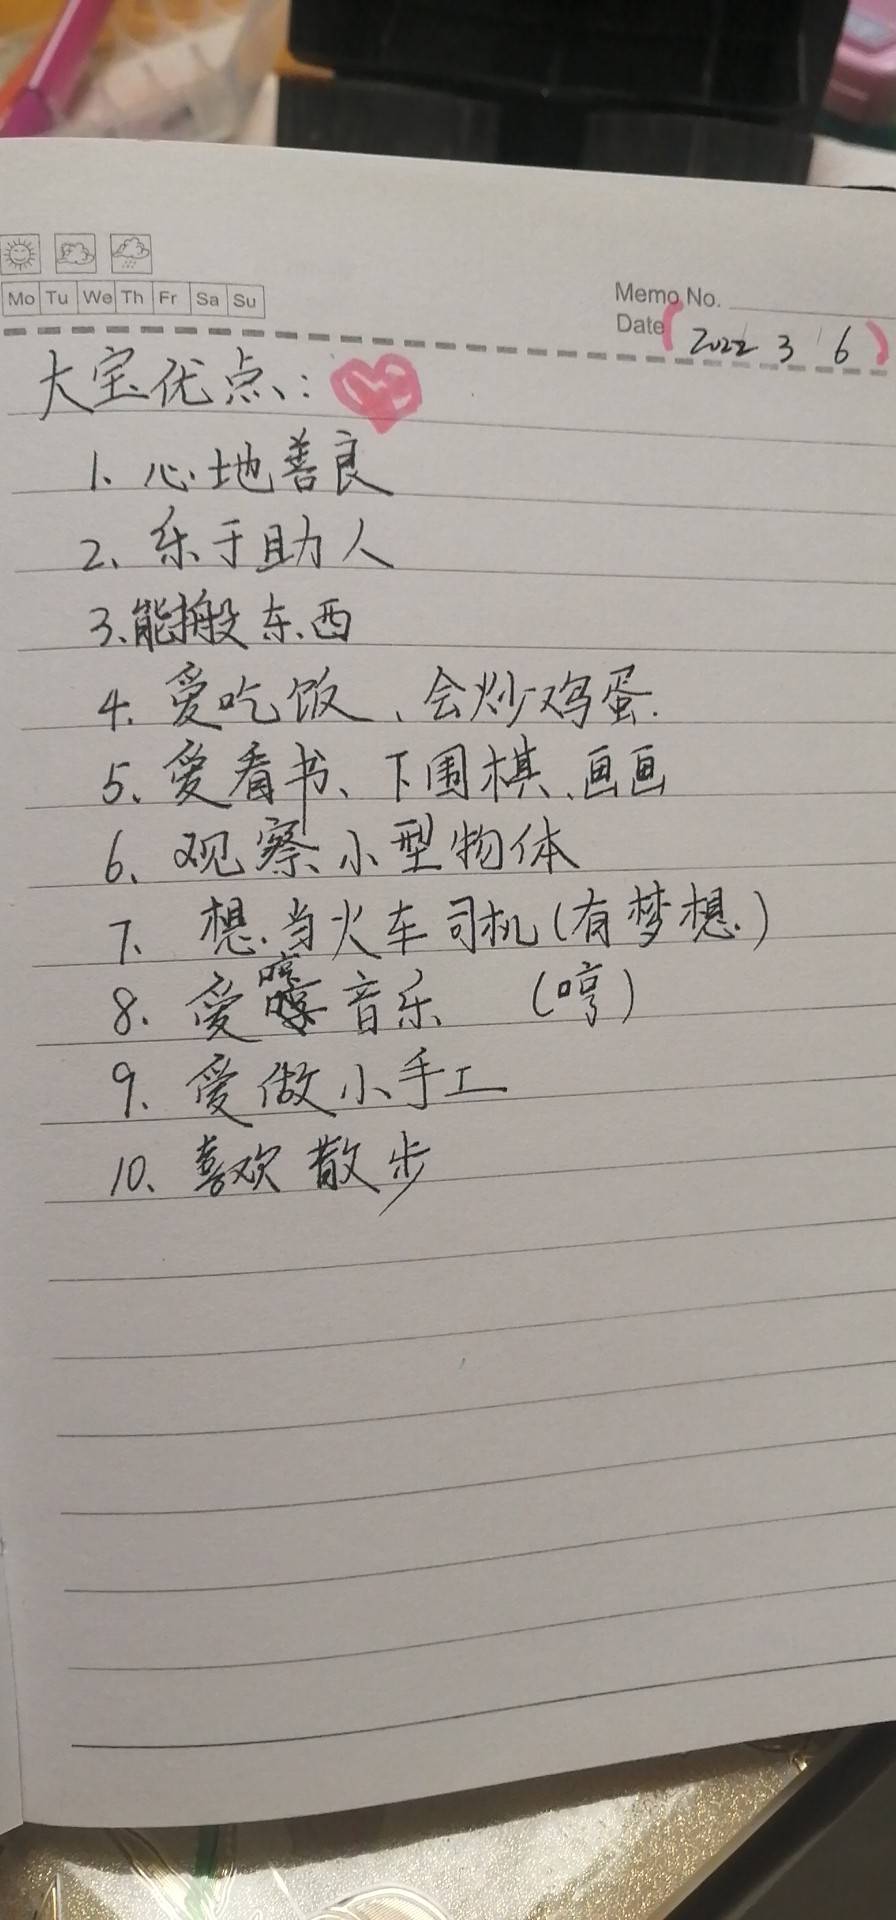 Mo Tu We Th Fr Sa Su
Memo No.
Date (2022 3 6)
大宝优点:
1. 心地善良
2、乐于助人
3、能搬东西
4. 爱吃饭、会炒鸡蛋.
5、爱看书、下围棋、画画
6、观察小型物体
7. 想当火车司机(有梦想)
哼
8. 爱音乐 (哼)
9. 爱做小手工
10、喜欢散步